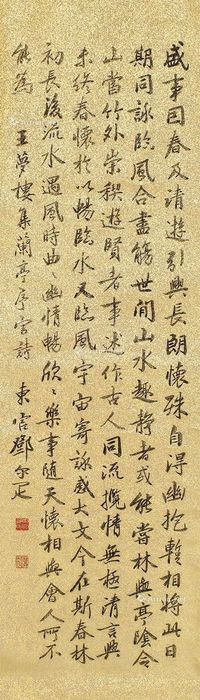 盛事囙春及清遊引興長朗懷殊自得幽抱暫相將此日
期同詠臨風合盡觴世間山水趣靜者或能當林與亭陰合
山當竹外崇稧遊賢者事述作古人同流攬情無極清言興
未終春懷於以暢臨水又臨風宇宙寄詠感大文今在斯春林
初長後流水遇風時曲〻幽情暢欣〻樂事隨天懷相與會人所不
能為 王夢樓集蘭亭序字詩 東官鄧爾疋